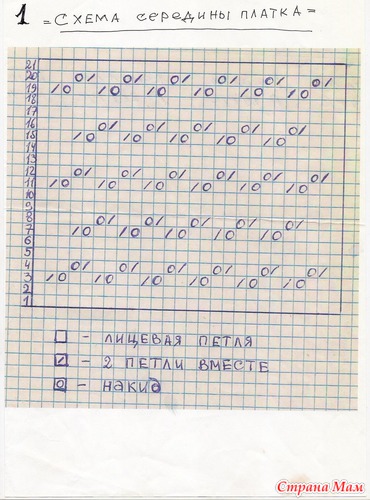 1 = Схема середины платка =
21
20 О/ О/ О/ О/ О/ О/
19 /О /О /О /О /О /О
18
17
16 О/ О/ О/ О/ О/
15 /О /О /О /О /О
14
13
12 О/ О/ О/ О/ О/ О/
11 /О /О /О /О /О /О
10
9
8 О/ О/ О/ О/ О/
7 /О /О /О /О /О
6
5
4 О/ О/ О/ О/ О/ О/
3 /О /О /О /О /О /О
2
1
□ - лицевая петля
/ - 2 петли вместе
О - накид
Страна Мам